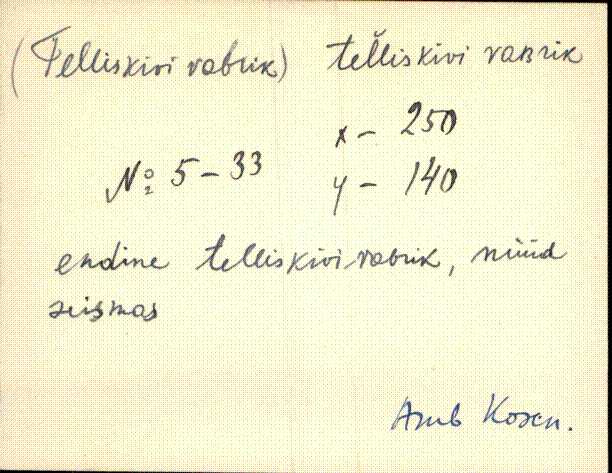 (Telliskivi vabrik) telliskivi vabrik
x – 250
№ 5 – 33
y – 140
endine telliskivi vabrik, nüüd
seismas
Kosen.